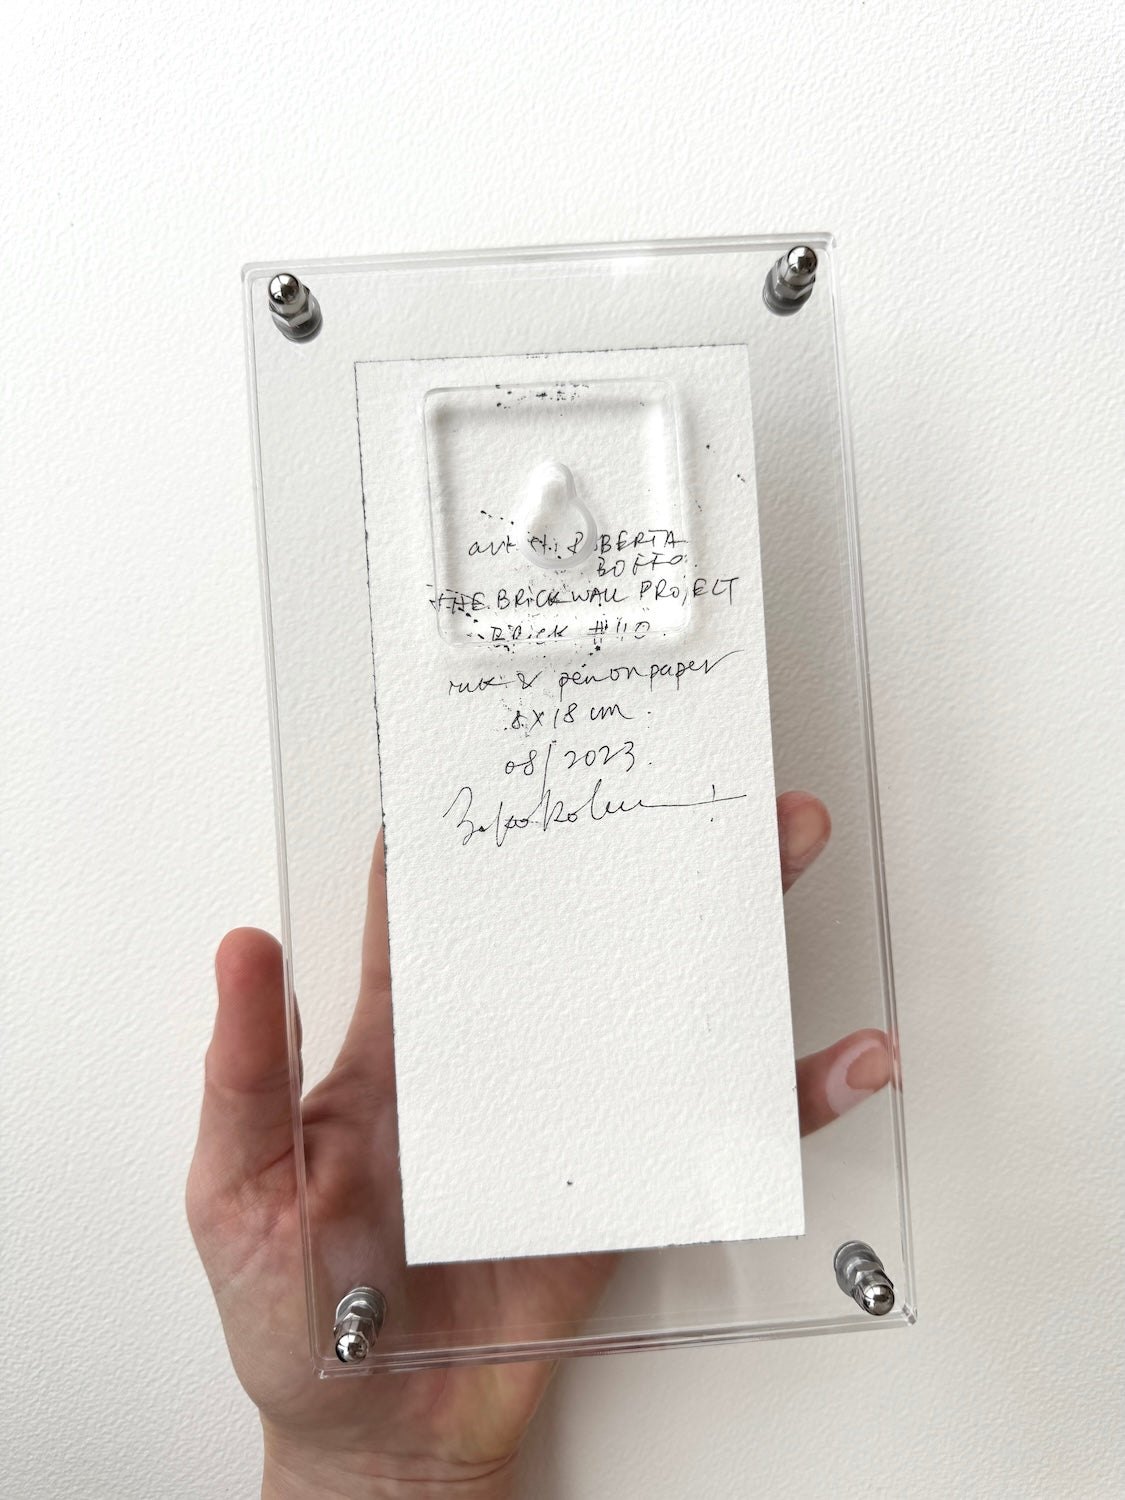 artist: ROBERTA
BOFFO.
THE BRICK WALL PROJECT
BRICK #110.
ink & pen on paper
8x18 cm.
08/2023.